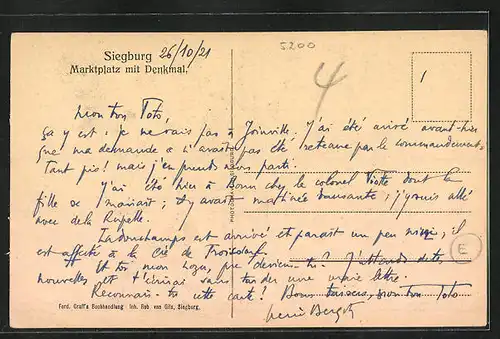 Siegburg 26/10/21
Marktplatz mit Denkmal.
5200
4
1
mon bon Toto,
ça y est : je ne vais pas à Joinville. J'ai été avisé avant-hier
que ma demande n'avait pas été retenue par le commandement.
Tant pis! mais j'en prends mon parti.
J'ai été hier à Bonn chez le colonel dont la
fille se mariait ; il y avait matinée dansante ; j'y suis allé
avec de la
est arrivé et paraît un peu ; il
est affecté à la Cie de Troisdorf.
Et toi mon que deviens-tu? J'attends de tes
nouvelles et t'écrirai sans tarder une vraie lettre.
Reconnais-tu cette carte? Bons baisers, mon bon Toto
E
Ferd. Graff's Buchhandlung : Inh. Seb. van Gils, Siegburg.